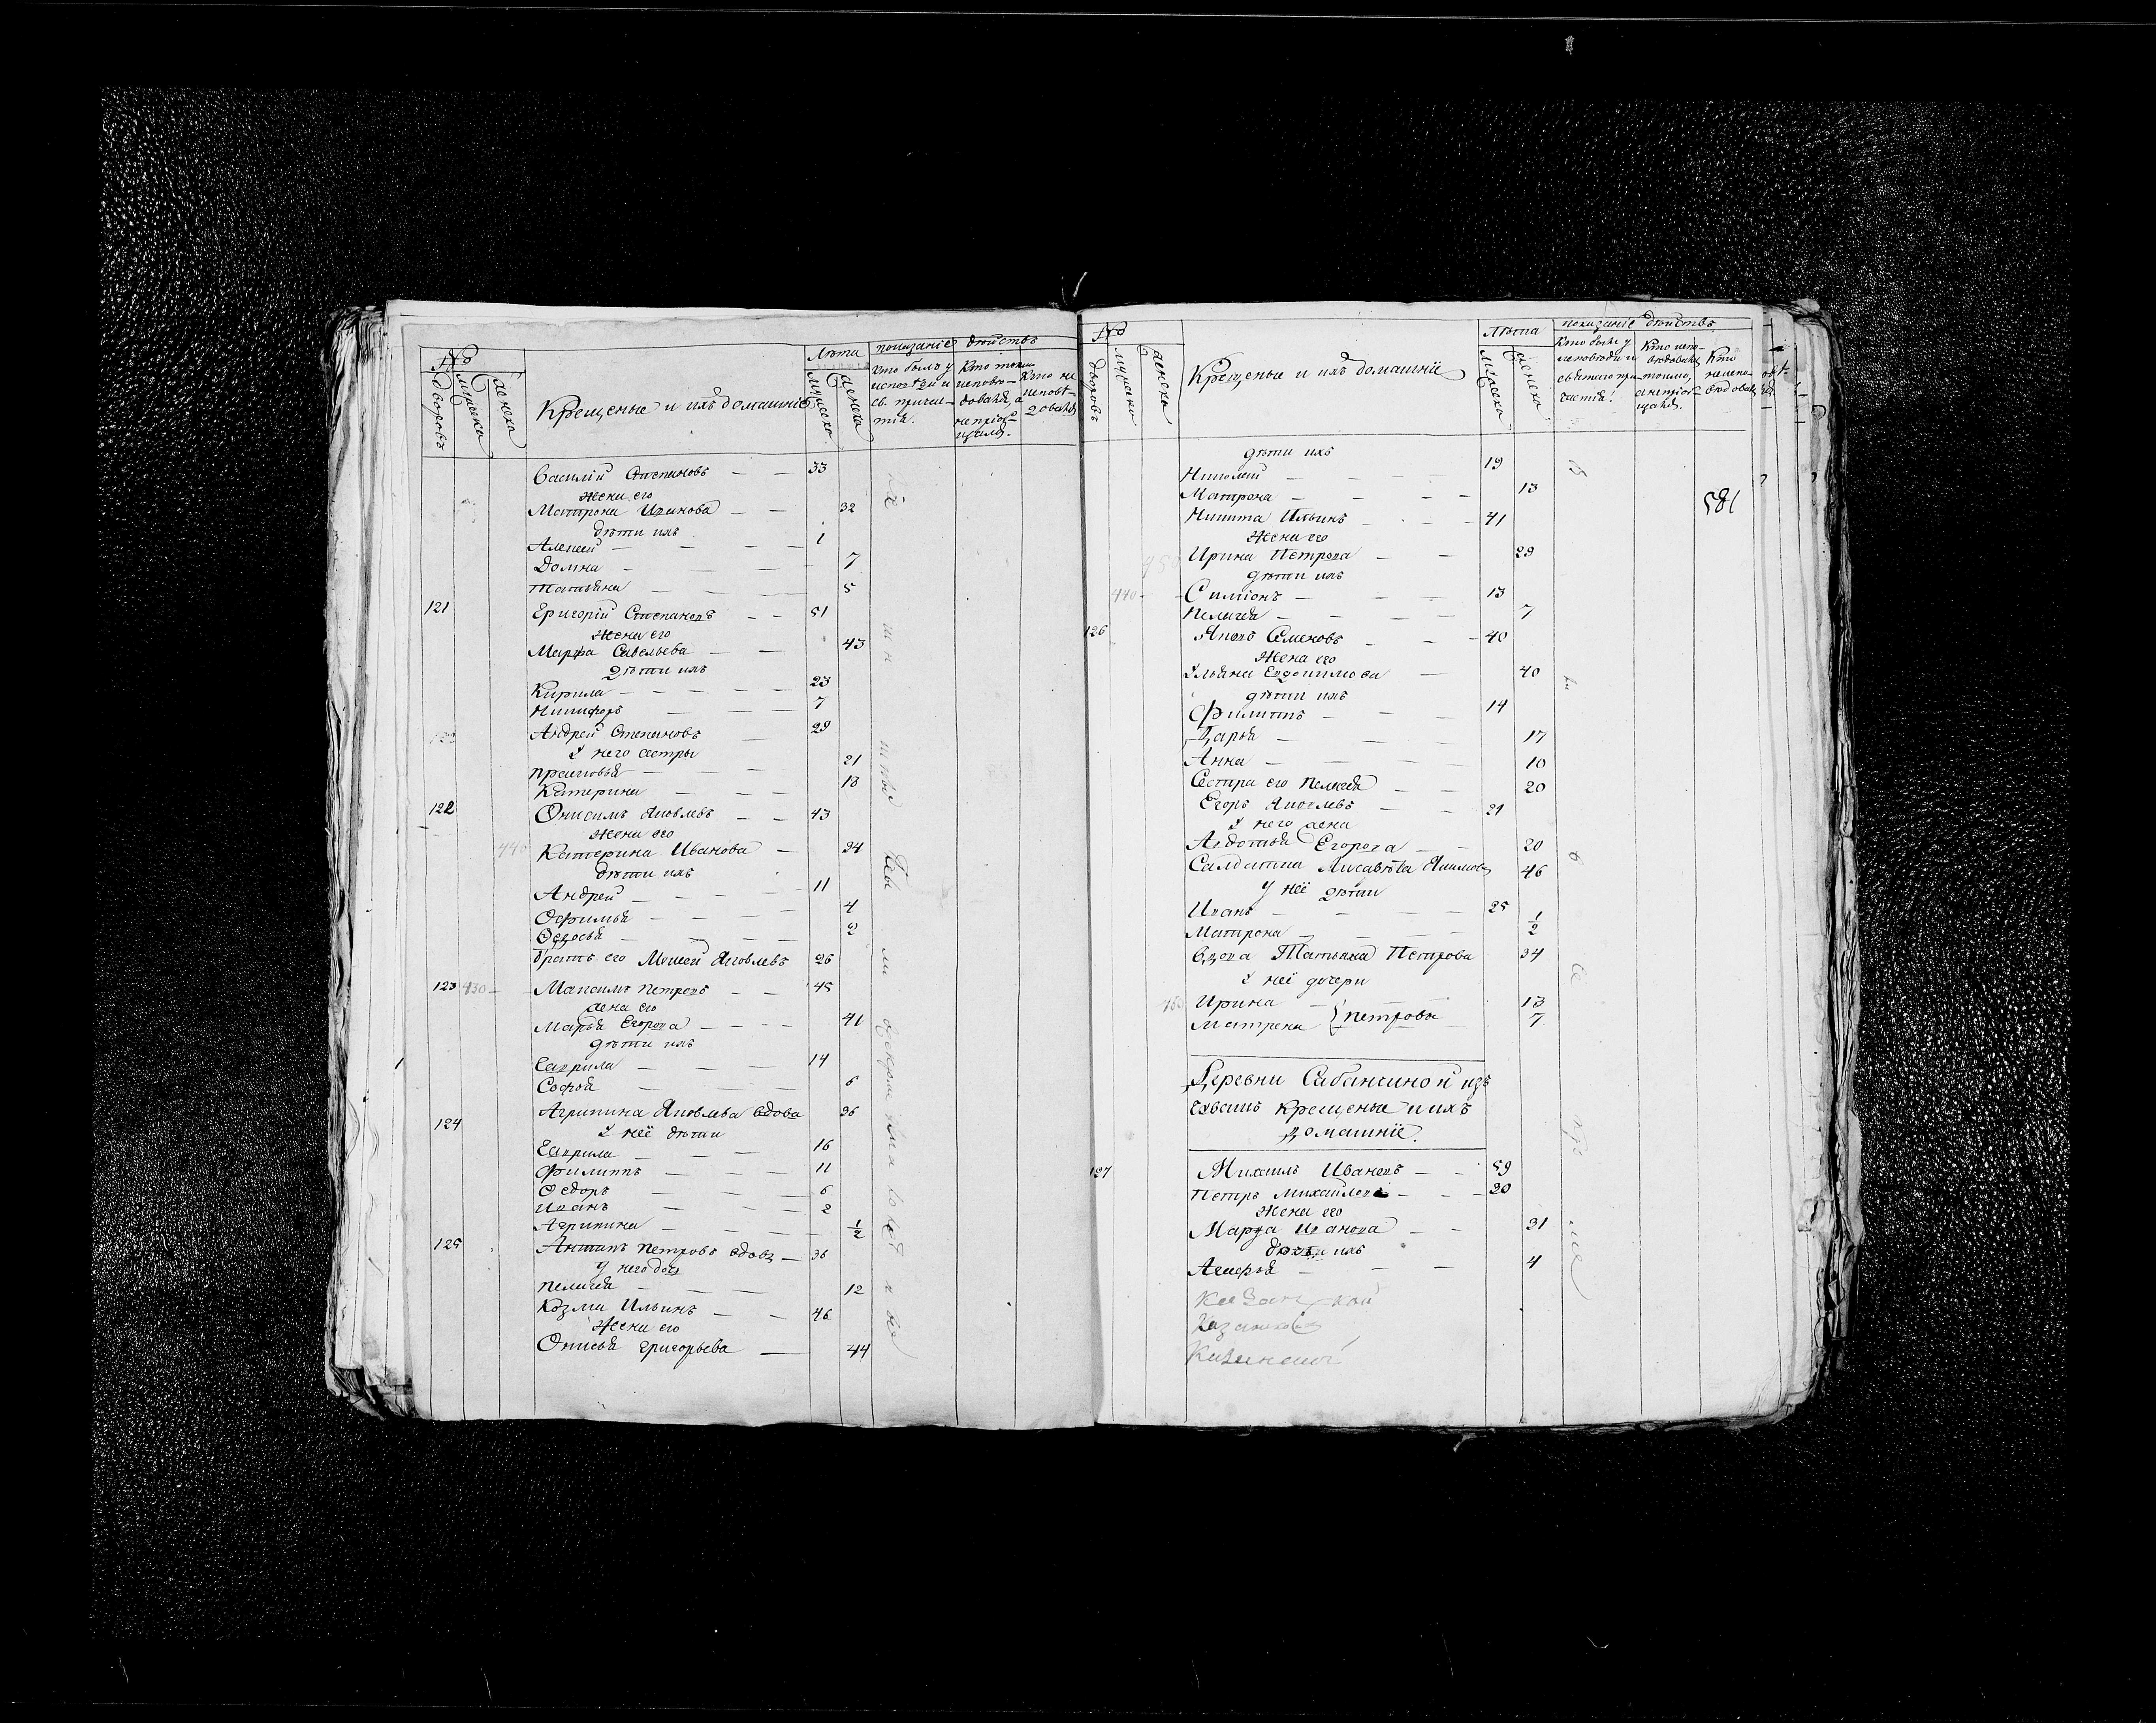 №
дворовъ
мужеска
женска
Крещеные и ихъ домашніе
Лѣта
мужеска
женска
показаніе действъ
кто былъ у исповѣди и св. причастія.
Кто токмо исповѣдовался, а не пріобщался.
Кто не исповѣдовался
Василій Степановъ — — 33
жена его
Матрона Иванова — — 32
дѣти ихъ
Алексей — — — — 1
Домна — — — — 7
Татьяна — — — — 5
121 Григорій Степановъ — — 51
жена его
Марфа Савельева — — 43
дѣти ихъ
Кирила — — — — 23
Никифоръ — — — 7
Андрей Степановъ — 29
У него сестры
Прасковья — — — 21
Катерина — — — 18
122 Онисимъ Яковлевъ — — 43
жена его
440 Катерина Иванова — 34
дѣти ихъ
Андрей — — — — 11
Офимья — — — — 4
Федосья — — — — 2
братъ его Мокей Яковлевъ 26
123 430 — Максимъ Петровъ — — 45
жена его
Марья Егорова — — — 41
дѣти ихъ
Гаврила — — — 14
Софья — — — 6
124 Агрипина Яковлева вдова 36
У неё дѣти
Гаврила — — — 16
Филиппъ — — — 11
Федоръ — — — 6
Иванъ — — — 2
Агрипина — — — 1/2
125 Антипъ Петровъ вдовъ — 36
У него дочь
Пелагея — — — 12
Козма Ильинъ — — 46
жена его
Онисья Григорьева — 44
№
дворовъ
мужеска
женска
Крещеные и ихъ домашніе
Лѣта
мужеска
женска
показаніе действъ
Кто былъ у исповѣди и святаго причастія.
Кто исповѣдовался токмо, а не пріобщался.
Кто не исповѣдовался
581
дѣти ихъ
Николай — — — 19
Матрона — — — — 13
Никита Ильинъ — — — 41
жена его
Ирина Петрова — — 29
дѣти ихъ
440 — Симіонъ — — — 13
Пелагея — — — 7
126 Яковъ Семеновъ — — — 40
жена его
Ульяна Евдокимова — 40
дѣти ихъ
Филиппъ — — — 14
Дарья — — — 17
Анна — — — — 10
Сестра его Пелагея — — 20
Егоръ Яковлевъ — — 21
У него жена
Авдотья Егорова — — 20
Салдатка Лисавѣта Якимова 46
У неё дѣти
Иванъ — — — — 25
Матрона — — — — 1/2
Вдова Татьяна Петрова 34
У неё дочери
Ирина — 13
Матрена } Петровы 7
Деревни
крещеные и ихъ
домашніе.
127 Михаилъ Ивановъ — — 59
Петръ Михайловъ — — — 30
жена его
Марфа Иванова — — 31
дѣти ихъ
Агафья — — — 4